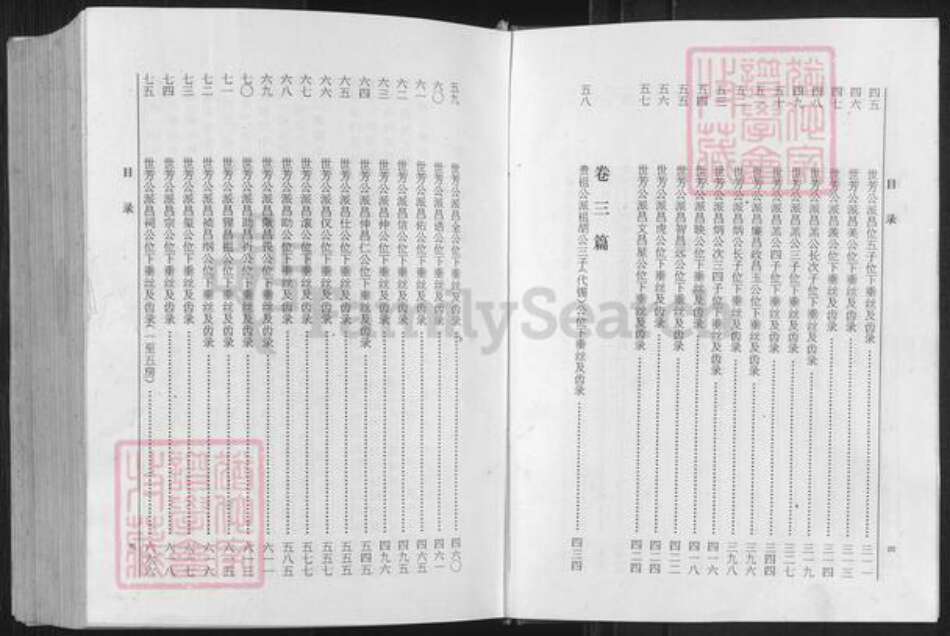 目录
四五 世芳公派昌位五子位下垂丝及齿录 三一一
四六 世芳公派昌美公位下垂丝及齿录 三一三
四七 世芳公派昌羡公位下垂丝及齿录 三一四
四八 世芳公派昌羔公长次子位下垂丝及齿录 三一九
四九 世芳公派昌羔公三子位下垂丝及齿录 三二七
五十 世芳公派昌羔公四子位下垂丝及齿录 三四四
世芳公派昌廉昌政昌玉公位下垂丝及齿录 三九六
世芳公派昌炳公长子位下垂丝及齿录 三九八
五三 世芳公派昌炳公次三四子位下垂丝及齿录 四一六
五四 世芳公派昌映公位下垂丝及齿录 四一八
五五 世芳公派昌智昌远公位下垂丝及齿录 四二二
五六 世芳公派昌虎公位下垂丝及齿录 四二四
五七 世芳公派昌文昌星公位下垂丝及齿录 四二四
卷三篇
五八 贵祖公派祖胡公三子(代锡)公位下垂丝及齿录 四三四
五九 世芳公派昌全公位下垂丝及齿录 四六〇
六〇 世芳公派昌诰公位下垂丝及齿录 四六一
六一 世芳公派昌佑公位下垂丝及齿录 四九二
六二 世芳公派昌信公位下垂丝及齿录 四九五
六三 世芳公派昌仲公位下垂丝及齿录 四九六
六四 世芳公派昌伸昌仁公位下垂丝及齿录 五四五
六五 世芳公派昌仕公位下垂丝及齿录 五五五
六六 世芳公派昌仪公位下垂丝及齿录 五五七
六七 世芳公派昌滚公位下垂丝及齿录 五七七
六八 世芳公派昌助公位下垂丝及齿录 五八五
六九 世芳公派昌公位下垂丝及齿录 六一一
七〇 世芳公派昌勋昌公位下垂丝及齿录 六三三
七一 世芳公派昌昌祖公位下垂丝及齿录
七二 世芳公派昌祯昌炯公位下垂丝及齿录
七三 世芳公派昌玺公位下垂丝及齿录
七四 世芳公派昌宗公位下垂丝及齿录
七五 世芳公派昌祠公位下垂丝及齿录(一至五房)
目录
FamilySearch